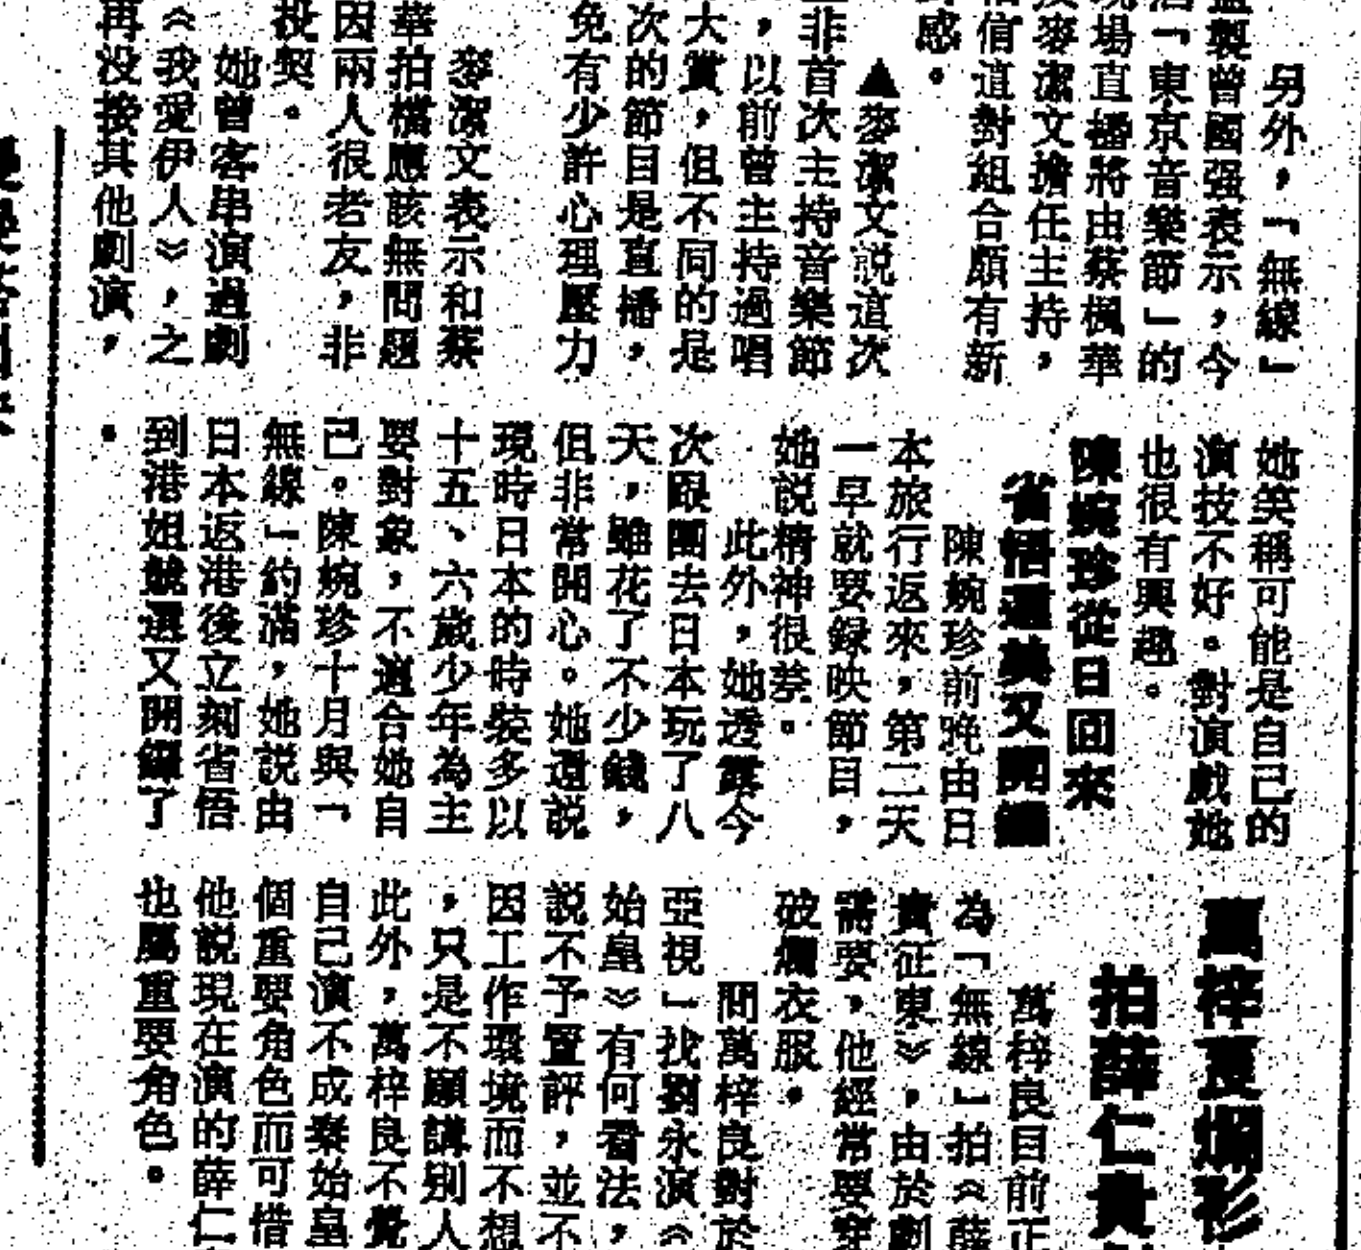 另外，「無線」
監製曾國强表示，今
「東京音樂節」的
現場直播將由蔡楓華
麥潔文擔任主持，
信道對組合頗有新
感。
▲麥潔文説道次
非首次主持音樂節
，以前曾主持過唱
大賞，但不同的是
次的節目是直播，
免有少許心理壓力
麥潔文表示和蔡
華拍檔應該無問題
因兩人很老友，非
投契。
她曾客串演過劇
《我愛伊人》，之
再没接其他劇演，
她笑稱可能是自己的
演技不好。對演戲她
也很有興趣。
陳婉珍從日回來
省悟遜美又開鑼
陳婉珍前晚由日
本旅行返來，第二天
一早就要録映節目，
她説精神很差。
此外，她透露今
次跟團去日本玩了八
天，雖花了不少錢，
但非常開心。她還説
現時日本的時裝多以
十五、六歲少年為主
要對象，不適合她自
己。陳婉珍十月與「
無線」約滿，她説由
日本返港後立刻省悟
到港姐競選又開鑼了
。
萬梓良爛衫
拍薛仁貴
萬梓良目前正
為「無線」拍《薛
貴征東》，由於劇
需要，他經常要穿
破爛衣服。
問萬梓良對於
亞視」找劉永演《
始皇》有何看法，
説不予置評，並不
因工作環境而不想
，只是不願講别人
此外，萬梓良不覺
自己演不成秦始皇
個重要角色而可惜
他説現在演的薛仁
也屬重要角色。